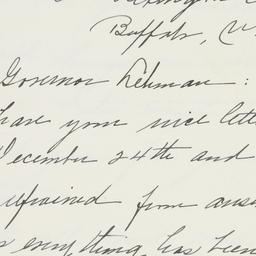 Buffalo, N
Governor Lehman :
have your nice lette
December 24th and
refrained from answ
everything has been